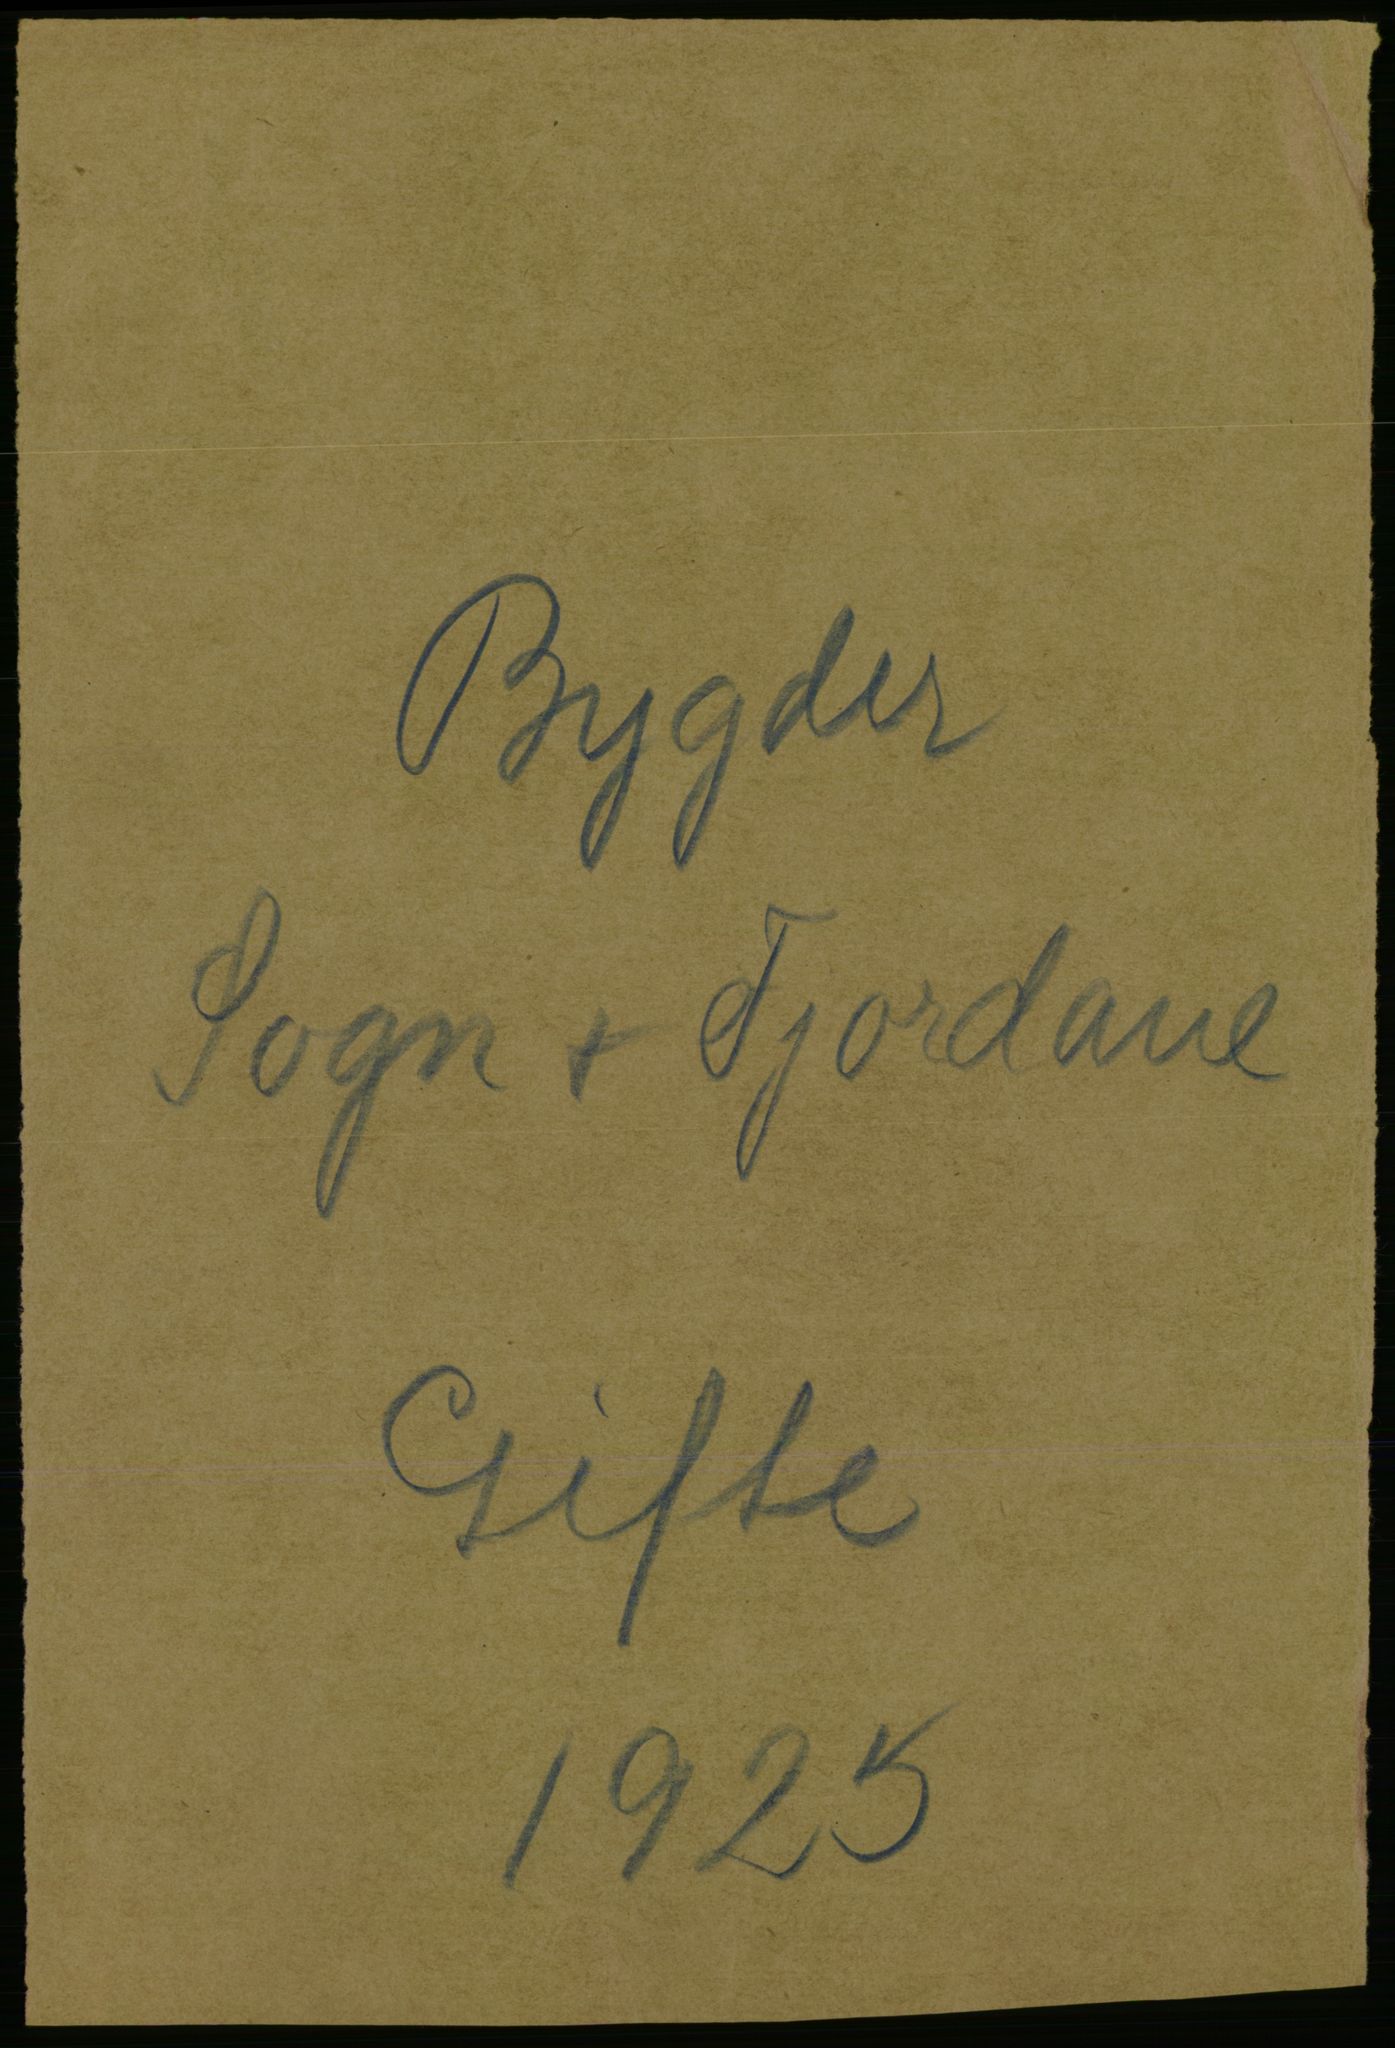 Bygder
Sogn + Fjordane
Gifte
1925